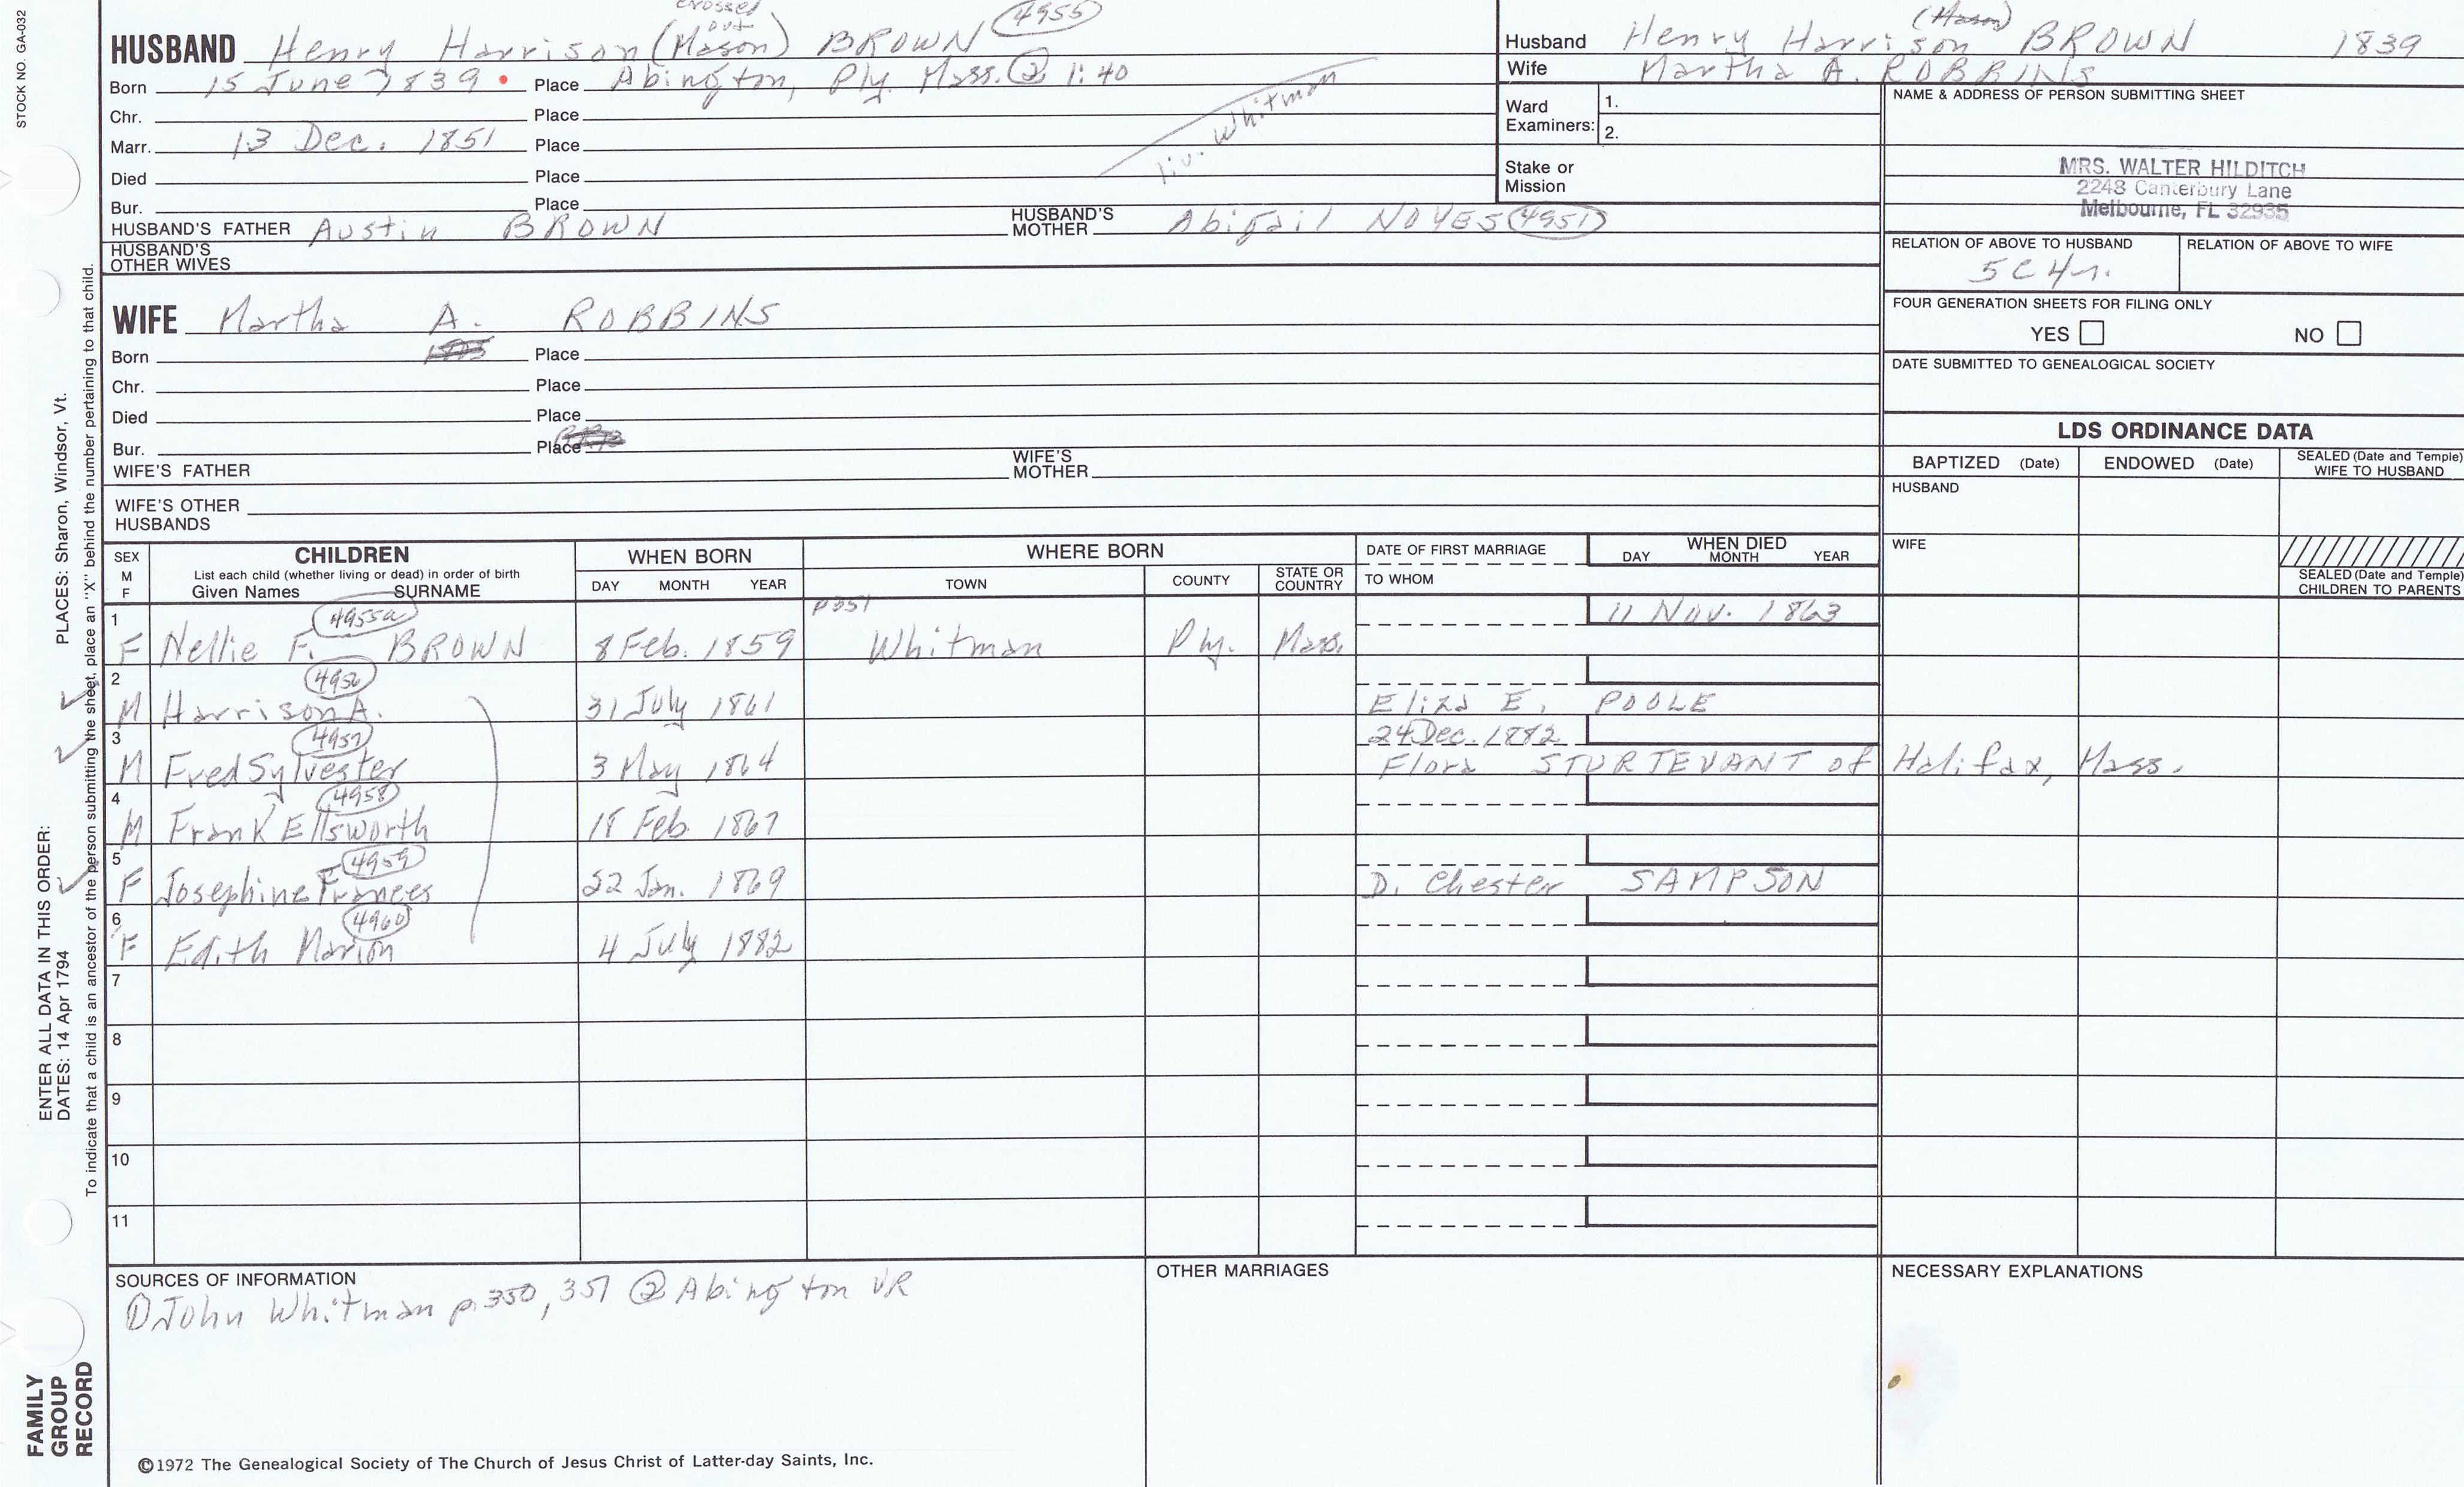 STOCK NO. GA-032
crossed
out
HUSBAND Henry Harrison (Mason) BROWN 4955
Born 15 June 1839 Place Abington, Ply. Mass. ② 1:40
Chr. Place
Marr. 13 Dec. 1851 Place
liv. Whitman
Died Place
Bur. Place
HUSBAND'S FATHER Austin BROWN HUSBAND'S MOTHER Abigail NOYES (4951)
HUSBAND'S
OTHER WIVES
WIFE Martha A. ROBBINS
Born Place
Chr. Place
Died Place
Bur. Place
WIFE'S FATHER WIFE'S MOTHER
WIFE'S OTHER
HUSBANDS
Husband Henry Harrison (Mason) BROWN 1839
Wife Martha A. ROBBINS
Ward
Examiners:
1.
2.
Stake or
Mission
NAME & ADDRESS OF PERSON SUBMITTING SHEET
MRS. WALTER HILDITCH
2248 Canterbury Lane
Melbourne, FL 32935
RELATION OF ABOVE TO HUSBAND RELATION OF ABOVE TO WIFE
5C4r.
FOUR GENERATION SHEETS FOR FILING ONLY
YES NO
DATE SUBMITTED TO GENEALOGICAL SOCIETY
LDS ORDINANCE DATA
BAPTIZED (Date) ENDOWED (Date) SEALED (Date and Temple) WIFE TO HUSBAND
HUSBAND
WIFE
SEALED (Date and Temple)
CHILDREN TO PARENTS
SEX
M
F
CHILDREN
List each child (whether living or dead) in order of birth
Given Names SURNAME
WHEN BORN
DAY MONTH YEAR
WHERE BORN
TOWN COUNTY STATE OR COUNTRY
DATE OF FIRST MARRIAGE
TO WHOM
WHEN DIED
DAY MONTH YEAR
1 4955a p351 11 Nov. 1863
F Nellie F. BROWN 8 Feb. 1859 Whitman Ply. Mass.
2 4956
M Harrison A. 31 July 1861 Eliza E. POOLE
3 4957 24 Dec. 1882
M Fred Sylvester 3 May 1864 Flora STURTEVANT of Halifax, Mass.
4 4958
M Frank Ellsworth 18 Feb. 1867
5 4959
F Josephine Frances 22 Jan. 1869 D. Chester SAMPSON
6 4960
F Edith Marion 4 July 1882
7
8
9
10
11
SOURCES OF INFORMATION
① John Whitman p. 350, 351 ② Abington VR
OTHER MARRIAGES
NECESSARY EXPLANATIONS
©1972 The Genealogical Society of The Church of Jesus Christ of Latter-day Saints, Inc.
ENTER ALL DATA IN THIS ORDER:
DATES: 14 Apr 1794 PLACES: Sharon, Windsor, Vt.
To indicate that a child is an ancestor of the person submitting the sheet, place an "X" behind the number pertaining to that child.
FAMILY
GROUP
RECORD